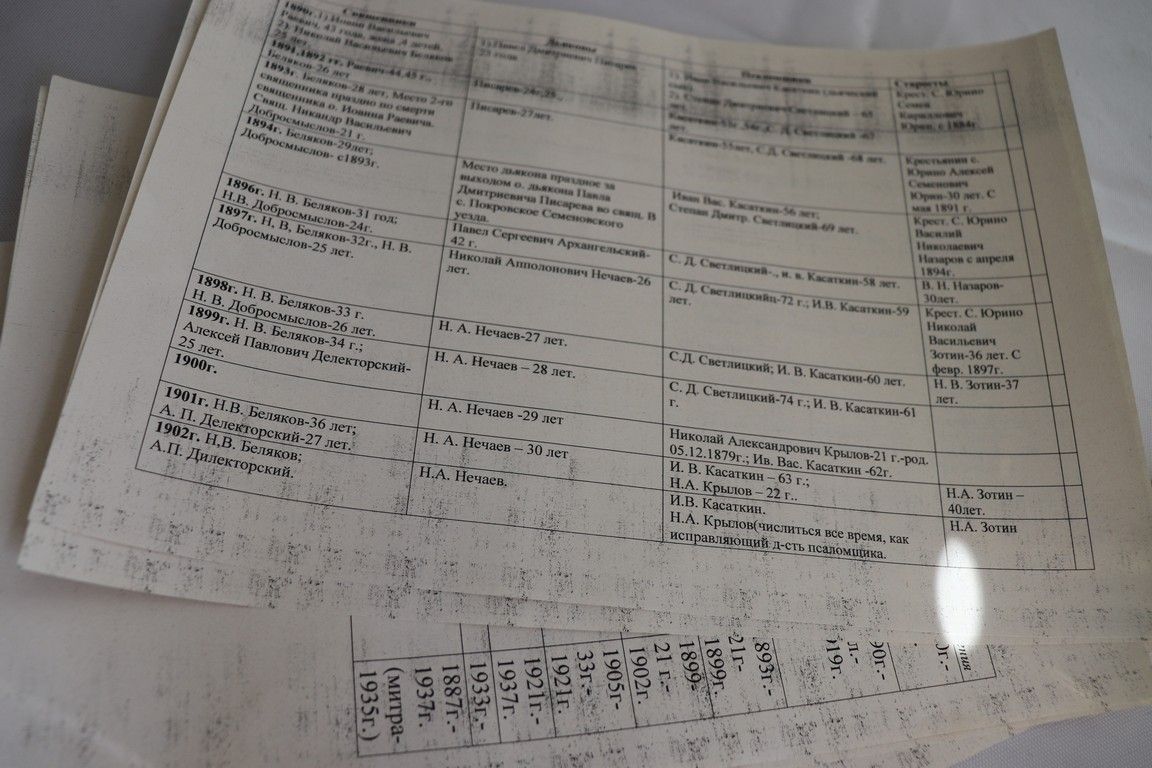 Священники
1890г.1) Иоанн Васильевич
Раевич, 43 года, жена ,4 детей.
2). Николай Васильевич Беляков
25 лет.
1891,1892 гг. Раевич-44,45 г.,
Беляков-26 лет
1893г. Беляков-28 лет, Место 2-го
священника праздно по смерти
священника о. Иоанна Раевича.
Свящ. Никандр Васильевич
Добросмыслов-21 г.
1894г. Беляков-29лет;
Добросмыслов- с1893г.
1896г. Н. В. Беляков-31 год;
Н.В. Добросмыслов-24г.
1897г. Н, В, Беляков-32г., Н. В.
Добросмыслов-25 лет.
1898г. Н. В. Беляков-33 г.
Н. В. Добросмыслов-26 лет.
1899г. Н. В. Беляков-34 г.;
Алексей Павлович Делекторский-
25 лет.
1900г.
1901г. Н.В. Беляков-36 лет;
А. П. Делекторский-27 лет.
1902г. Н.В. Беляков;
А.П. Дилекторский.
Дьяконы
1) Павел Дмитриевич Писарев
23 года
Писарев-24г,25.,
Писарев-27лет.
Место дьякона праздное за
выходом о. дьякона Павла
Дмитриевича Писарева во свящ. В
с. Покровское Семеновского
уезда.
Павел Сергеевич Архангельский-
42 г.
Николай Апполонович Нечаев-26
лет.
Н. А. Нечаев-27 лет.
Н. А. Нечаев – 28 лет.
Н. А. Нечаев -29 лет
Н. А. Нечаев – 30 лет
Н.А. Нечаев.
Псаломщики
1). Иван Васильевич Касаткин
2). Степан Дмитриевич Светлицкий – 65
лет.
Касаткин-53г,54г.,С. Д. Светлицкий -67
лет.
Касаткин-55лет, С.Д. Светлицкий -68 лет.
Иван Вас. Касаткин-56 лет;
Степан Дмитр. Светлицкий-69 лет.
С. Д. Светлицкий-., и. в. Касаткин-58 лет.
С. Д. Светлицкийц-72 г.; И.В. Касаткин-59
лет.
С.Д. Светлицкий; И. В. Касаткин-60 лет.
С. Д. Светлицкий-74 г.; И. В. Касаткин-61
г.
Николай Александрович Крылов-21 г.-род.
05.12.1879г.; Ив. Вас. Касаткин -62г.
И. В. Касаткин – 63 г.;
Н.А. Крылов – 22 г..
И.В. Касаткин.
Н.А. Крылов(числиться все время, как
исправляющий д-сть псаломщика.
Старосты
Крест. С. Юрино
Семен
Кириллович
Юрин, с 1884г.
Крестьянин с.
Юрино Алексей
Семенович
Юрин-30 лет. С
мая 1891 г.
Крест. С. Юрино
Василий
Николаевич
Назаров с апреля
1894г.
В. Н. Назаров-
30лет.
Крест. С. Юрино
Николай
Васильевич
Зотин-36 лет. С
февр. 1897г.
Н. В. Зотин-37
лет.
Н.А. Зотин –
40лет.
Н.А. Зотин
893г.-
21г-
1899г.
1899-
21 г.-
1902г.
1905-
33г.-
1921г.
1921г.-
1937г.
1933г.-
1887г.-
1937г.
(митра-
1935г.)